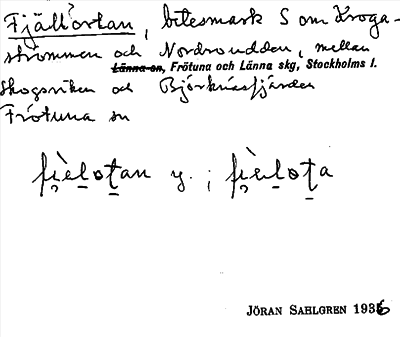 Fjällortan, betesmark S om Kroga-
strömmen och Nordrondden, mellan
Länna sn, Frötuna och Länna skg, Stockholms l.
Skogsviken och Björknäsfjärden
Frötuna sn
y. ;
JÖRAN SAHLGREN 1936